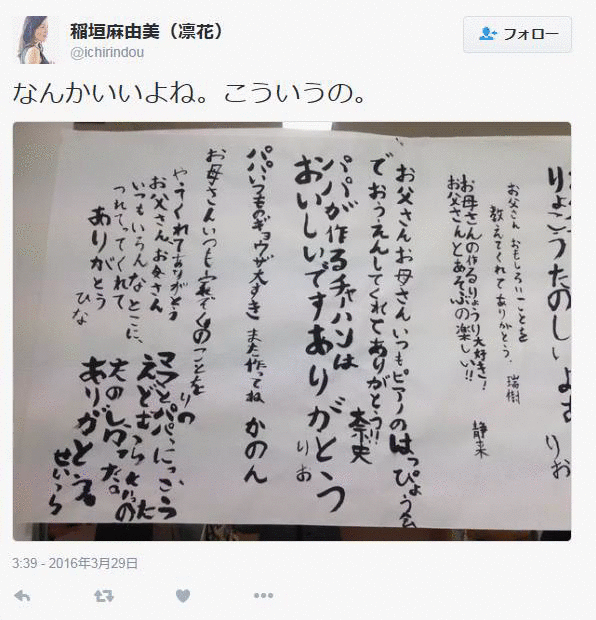 稲垣麻由美（凛花）
@ichirindou
フォロー
なんかいいよね。こういうの。
りょこうたのしいよ
りお
お父さん おもしろいことを
教えてくれてありがとう。 瑞樹
お母さんの作るりょうり大好き!
お父さんとあそぶの楽しい!! 静来
お父さんお母さんいつもピアノのはっぴょう会
でおうえんしてくれてありがとう!! 奈史
パパが作るチャハンは
おいしいですありがとう りお
パパいつものギョウザ大すき また作ってね かのん
お母さんいつも のことを
くれてありがとう りの
お父さんお母さん
いつもいろんなとこに、
つれてってくれて
ありがとう ひな
ママとパパ、にっこう
えどむら
ありがとう
せいら
3:39 - 2016年3月29日